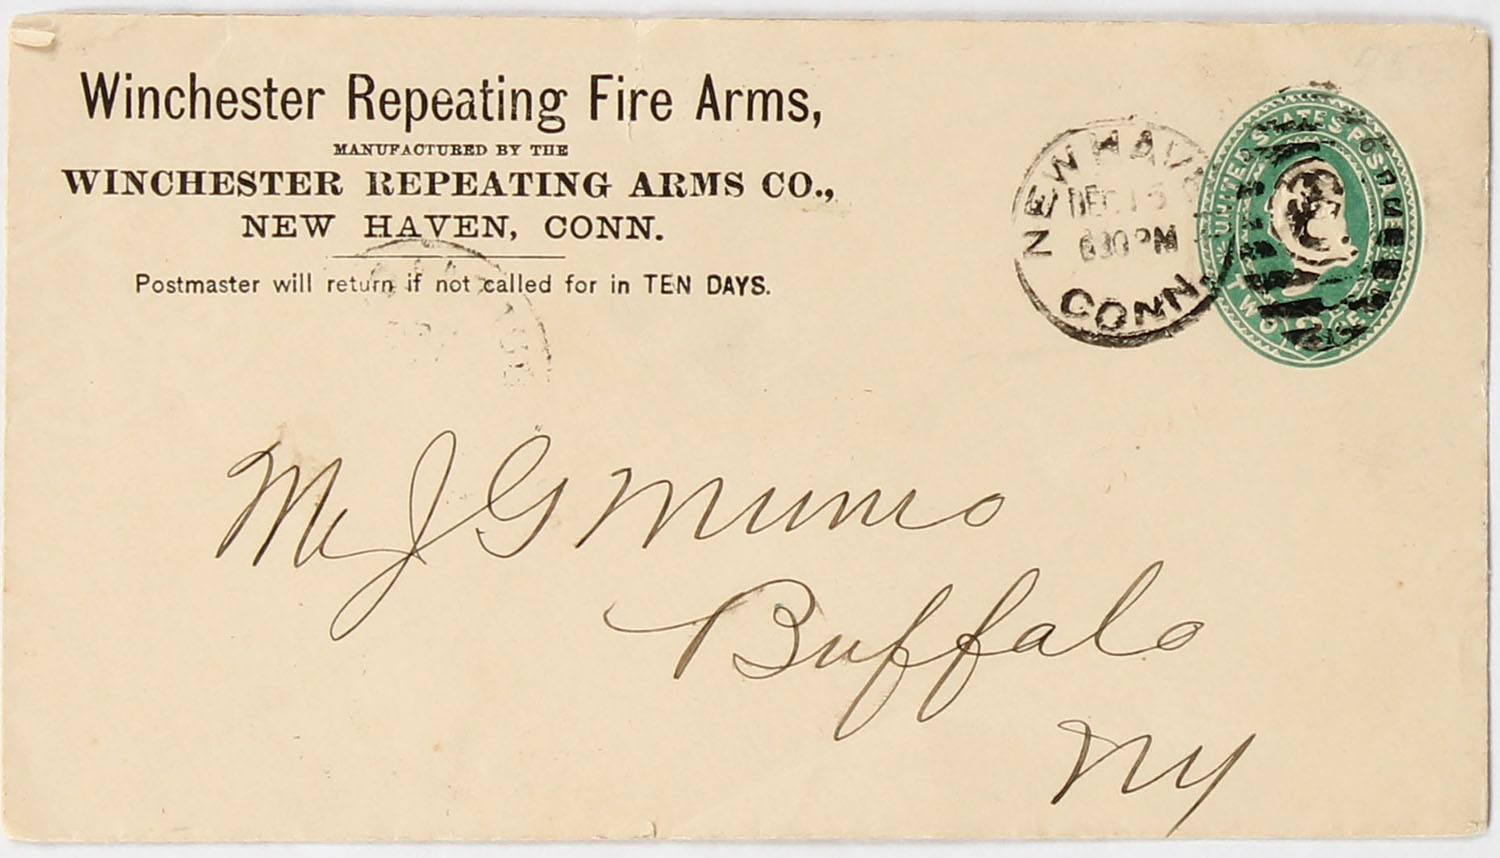 Winchester Repeating Fire Arms,
MANUFACTURED BY THE
WINCHESTER REPEATING ARMS CO.,
NEW HAVEN, CONN.
Postmaster will return if not called for in TEN DAYS.
NEW HAVEN
DEC 15
630PM
CONN.
UNITED STATES POSTAGE
TWO 2 CENTS
Mr J G Munro
Buffalo
NY